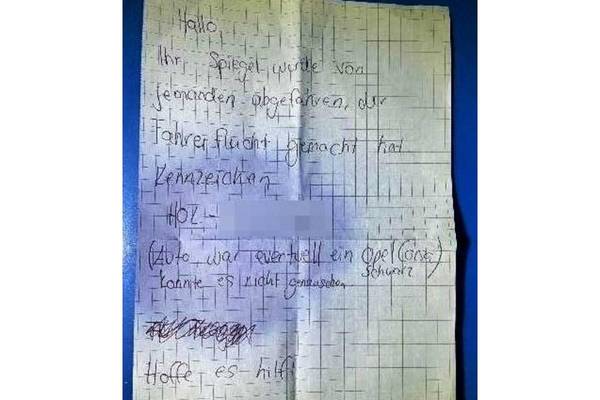 Hallo,
Ihr Spiegel wurde von
jemanden abgefahren, der
Fahrerflucht gemacht hat
Kennzeichen
HOL-
(Auto war eventuell ein Opel Corsa)
schwarz
konnte es nicht genau sehen
Hoffe es hilft